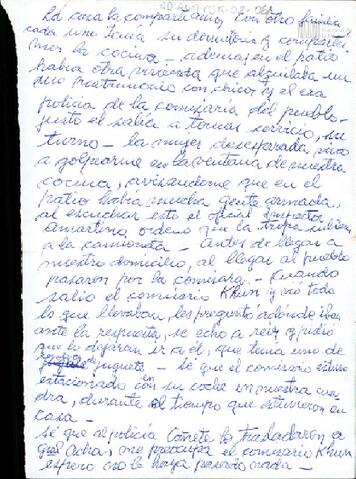 la casa la compartíamos con otra familia
cada uno tenía su dormitorio y compartía
mos la cocina - además en el patio
había otra vivienda que alquilaba un
matrimonio con chicos, y el era
policía de la comisaría del pueblo -
justo el salía a tomar servicio, su
turno - la mujer desesperada vino
a golpearme en la ventana de nuestra
cocina, avisandome que en el
patio había mucha gente armada,
al escuchar esto el oficial inspector
amartino ordeno que la tropa subiera
a la camioneta - Antes de llegar a
nuestro domicilio, al llegar al pueblo
pasaron por la comisaría - Cuando
salió el comisario Khun y vió todo
lo que llevaban, les preguntó adónde iban
ante la respuesta, se echo a reir y pidió
que lo dejaran ir a él, que tenía uno de
juguete - Sé que el comisario estuvo
estacionado con su coche en nuestra cua
dra, durante el tiempo que estuvieron en
casa -
Sé que al policía lo trasladaron a
Gral Acha, me preocupa el comisario Khun
espero no le haya pasado nada -